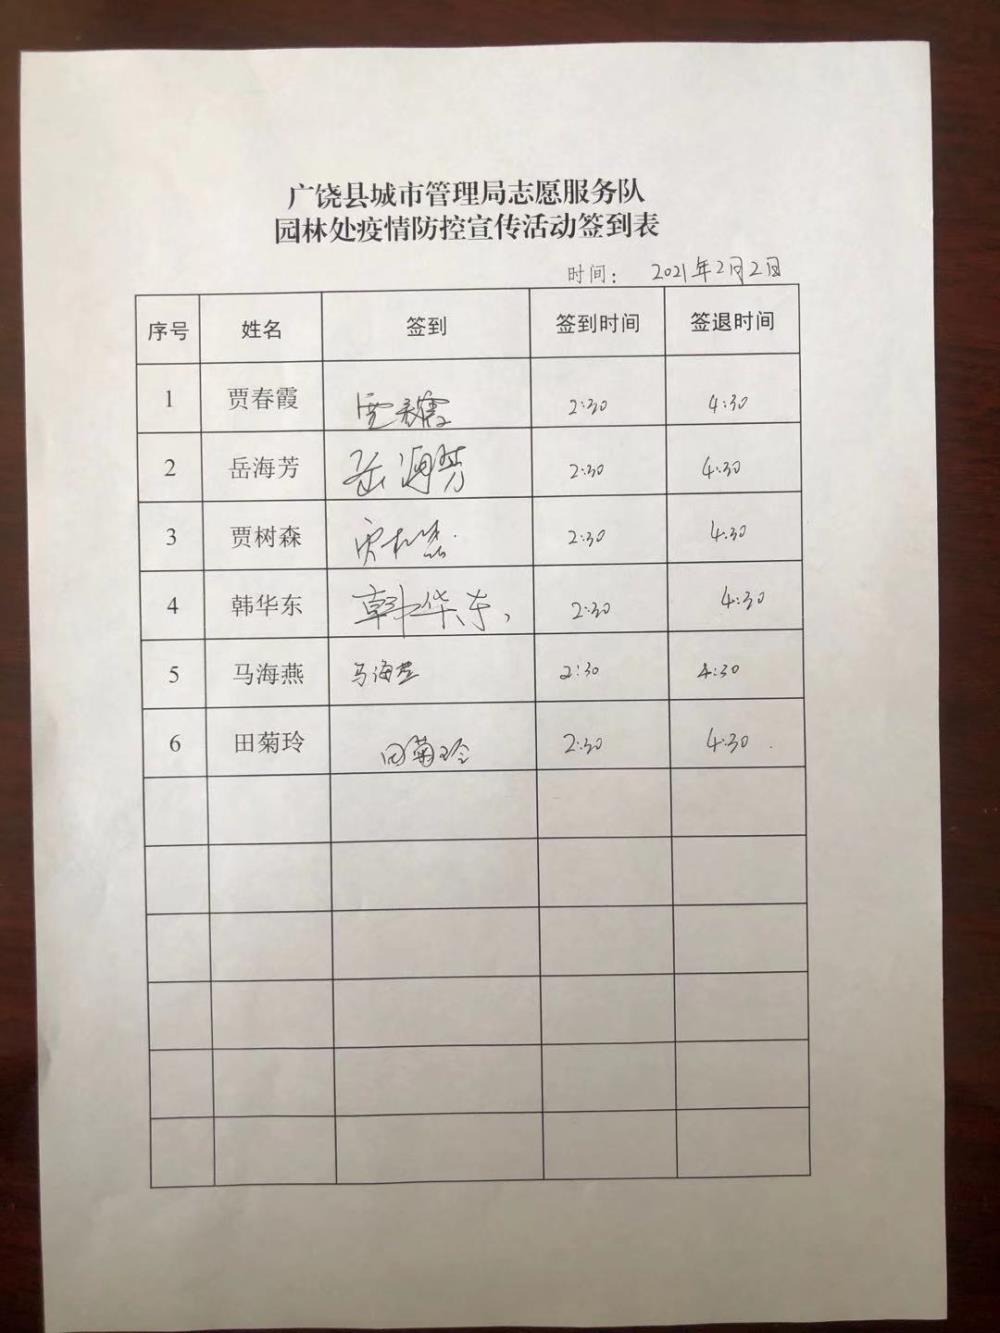 广饶县城市管理局志愿服务队
园林处疫情防控宣传活动签到表
时间： 2021年2月2日
序号 姓名 签到 签到时间 签退时间
1 贾春霞 贾春霞 2:30 4:30
2 岳海芳 岳海芳 2:30 4:30
3 贾树森 贾树森 2:30 4:30
4 韩华东 韩华东 2:30 4:30
5 马海燕 马海燕 2:30 4:30
6 田菊玲 田菊玲 2:30 4:30